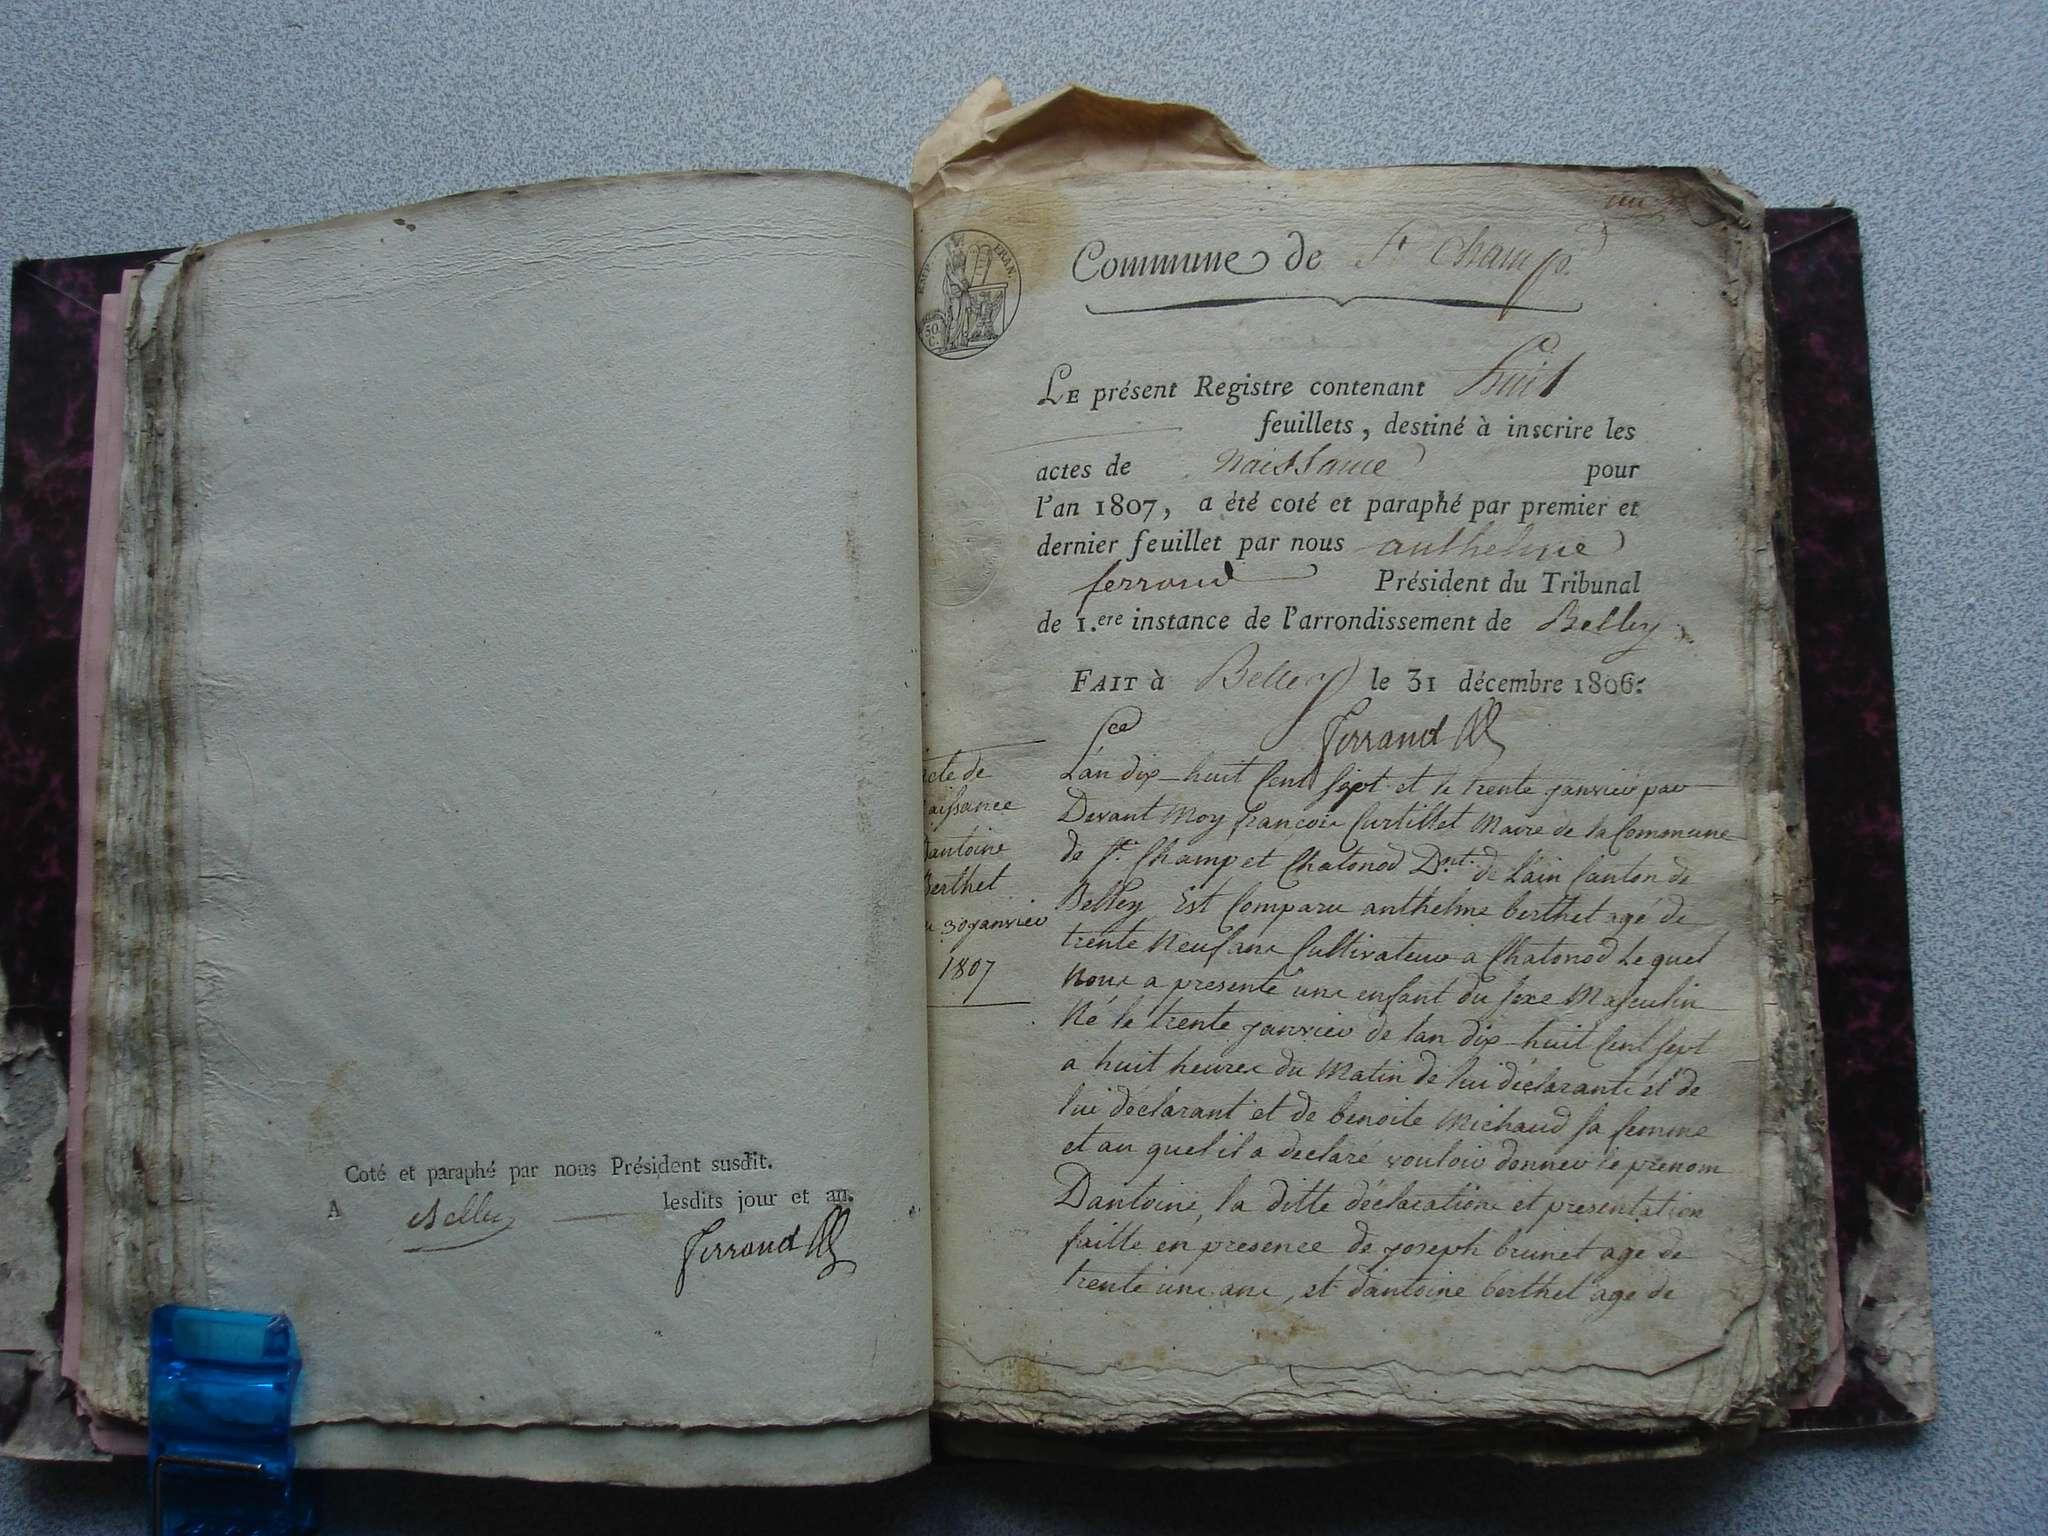 Coté et paraphé par nous Président susdit.
A Belley lesdits jour et an.
Ferrand
un
EMP. FRAN.
50
C.
Commune de St Champ.
LE présent Registre contenant huit
feuillets, destiné à inscrire les
actes de naissance pour
l'an 1807, a été coté et paraphé par premier et
dernier feuillet par nous anthelme
ferrand Président du Tribunal
de 1.ere instance de l'arrondissement de Belley
FAIT à Belley le 31 décembre 1806.
Ferrand
acte de
naissance
Dantoine
Berthet
du 30 janvier
1807
L'an dix-huit Cent Sept et le trente janvier par
Devant Moy francois Curtillet Maire de la Commune
de St. Champ et Chatonod Dnt. de Lain Canton de
Belley Est Comparu anthelme berthet agé de
trente Neuf ans Cultivateur a Chatonod Lequel
Nous a presenté une enfant du Sexe Masculin
Né le trente janvier de lan dix-huit Cent Sept
a huit heures du Matin de lui déclarant et de
lui déclarant et de benoite Michaud sa femme
et au quel il a declaré vouloir donner le prenom
Dantoine, la ditte déclarations et presentation
faitte en presence de joseph brunet age de
trente une ans, et dantoine berthet age de